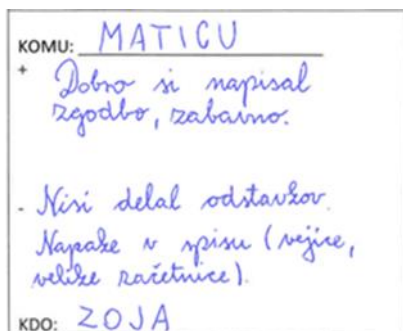 KOMU: MATICU
+ Dobro si napisal
zgodbo, zabavno.
- Nisi delal odstavkov.
Napake v spisu (vejice,
velike začetnice).
KDO: ZOJA